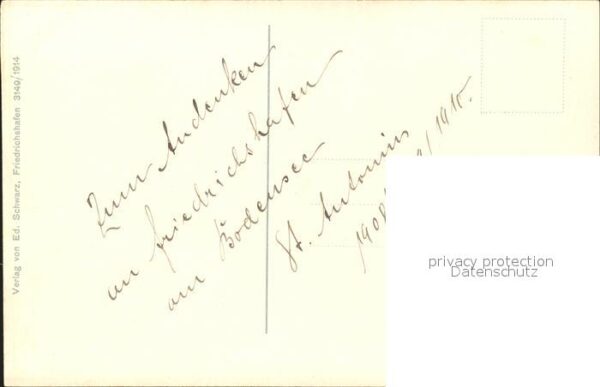 Verlag von Ed. Schwarz, Friedrichshafen 3149/1914
Zum Andenken
an friedrichshafen
am Bodensee
St. Antonius
1908/ /1915.
privacy protection
Datenschutz